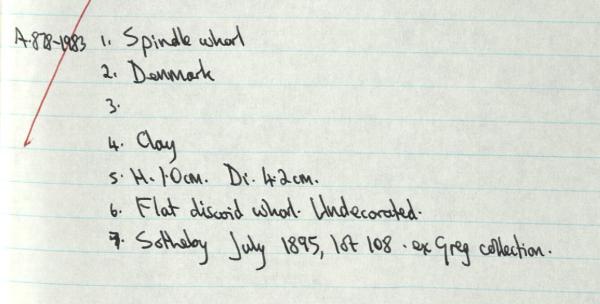 A.878-1983 1. Spindle whorl
2. Denmark
3.
4. Clay
5. H. 1.0cm. Di. 4.2cm.
6. Flat discoid whorl. Undecorated.
7. Sotheby July 1895, lot 108. ex Greg collection.